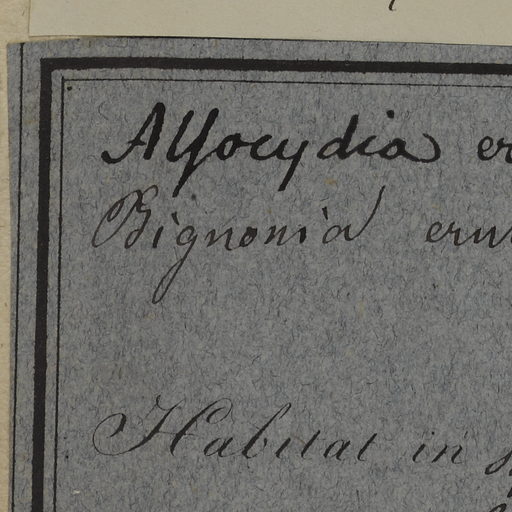 Allocydia er
Bignonia eru
Habitat in